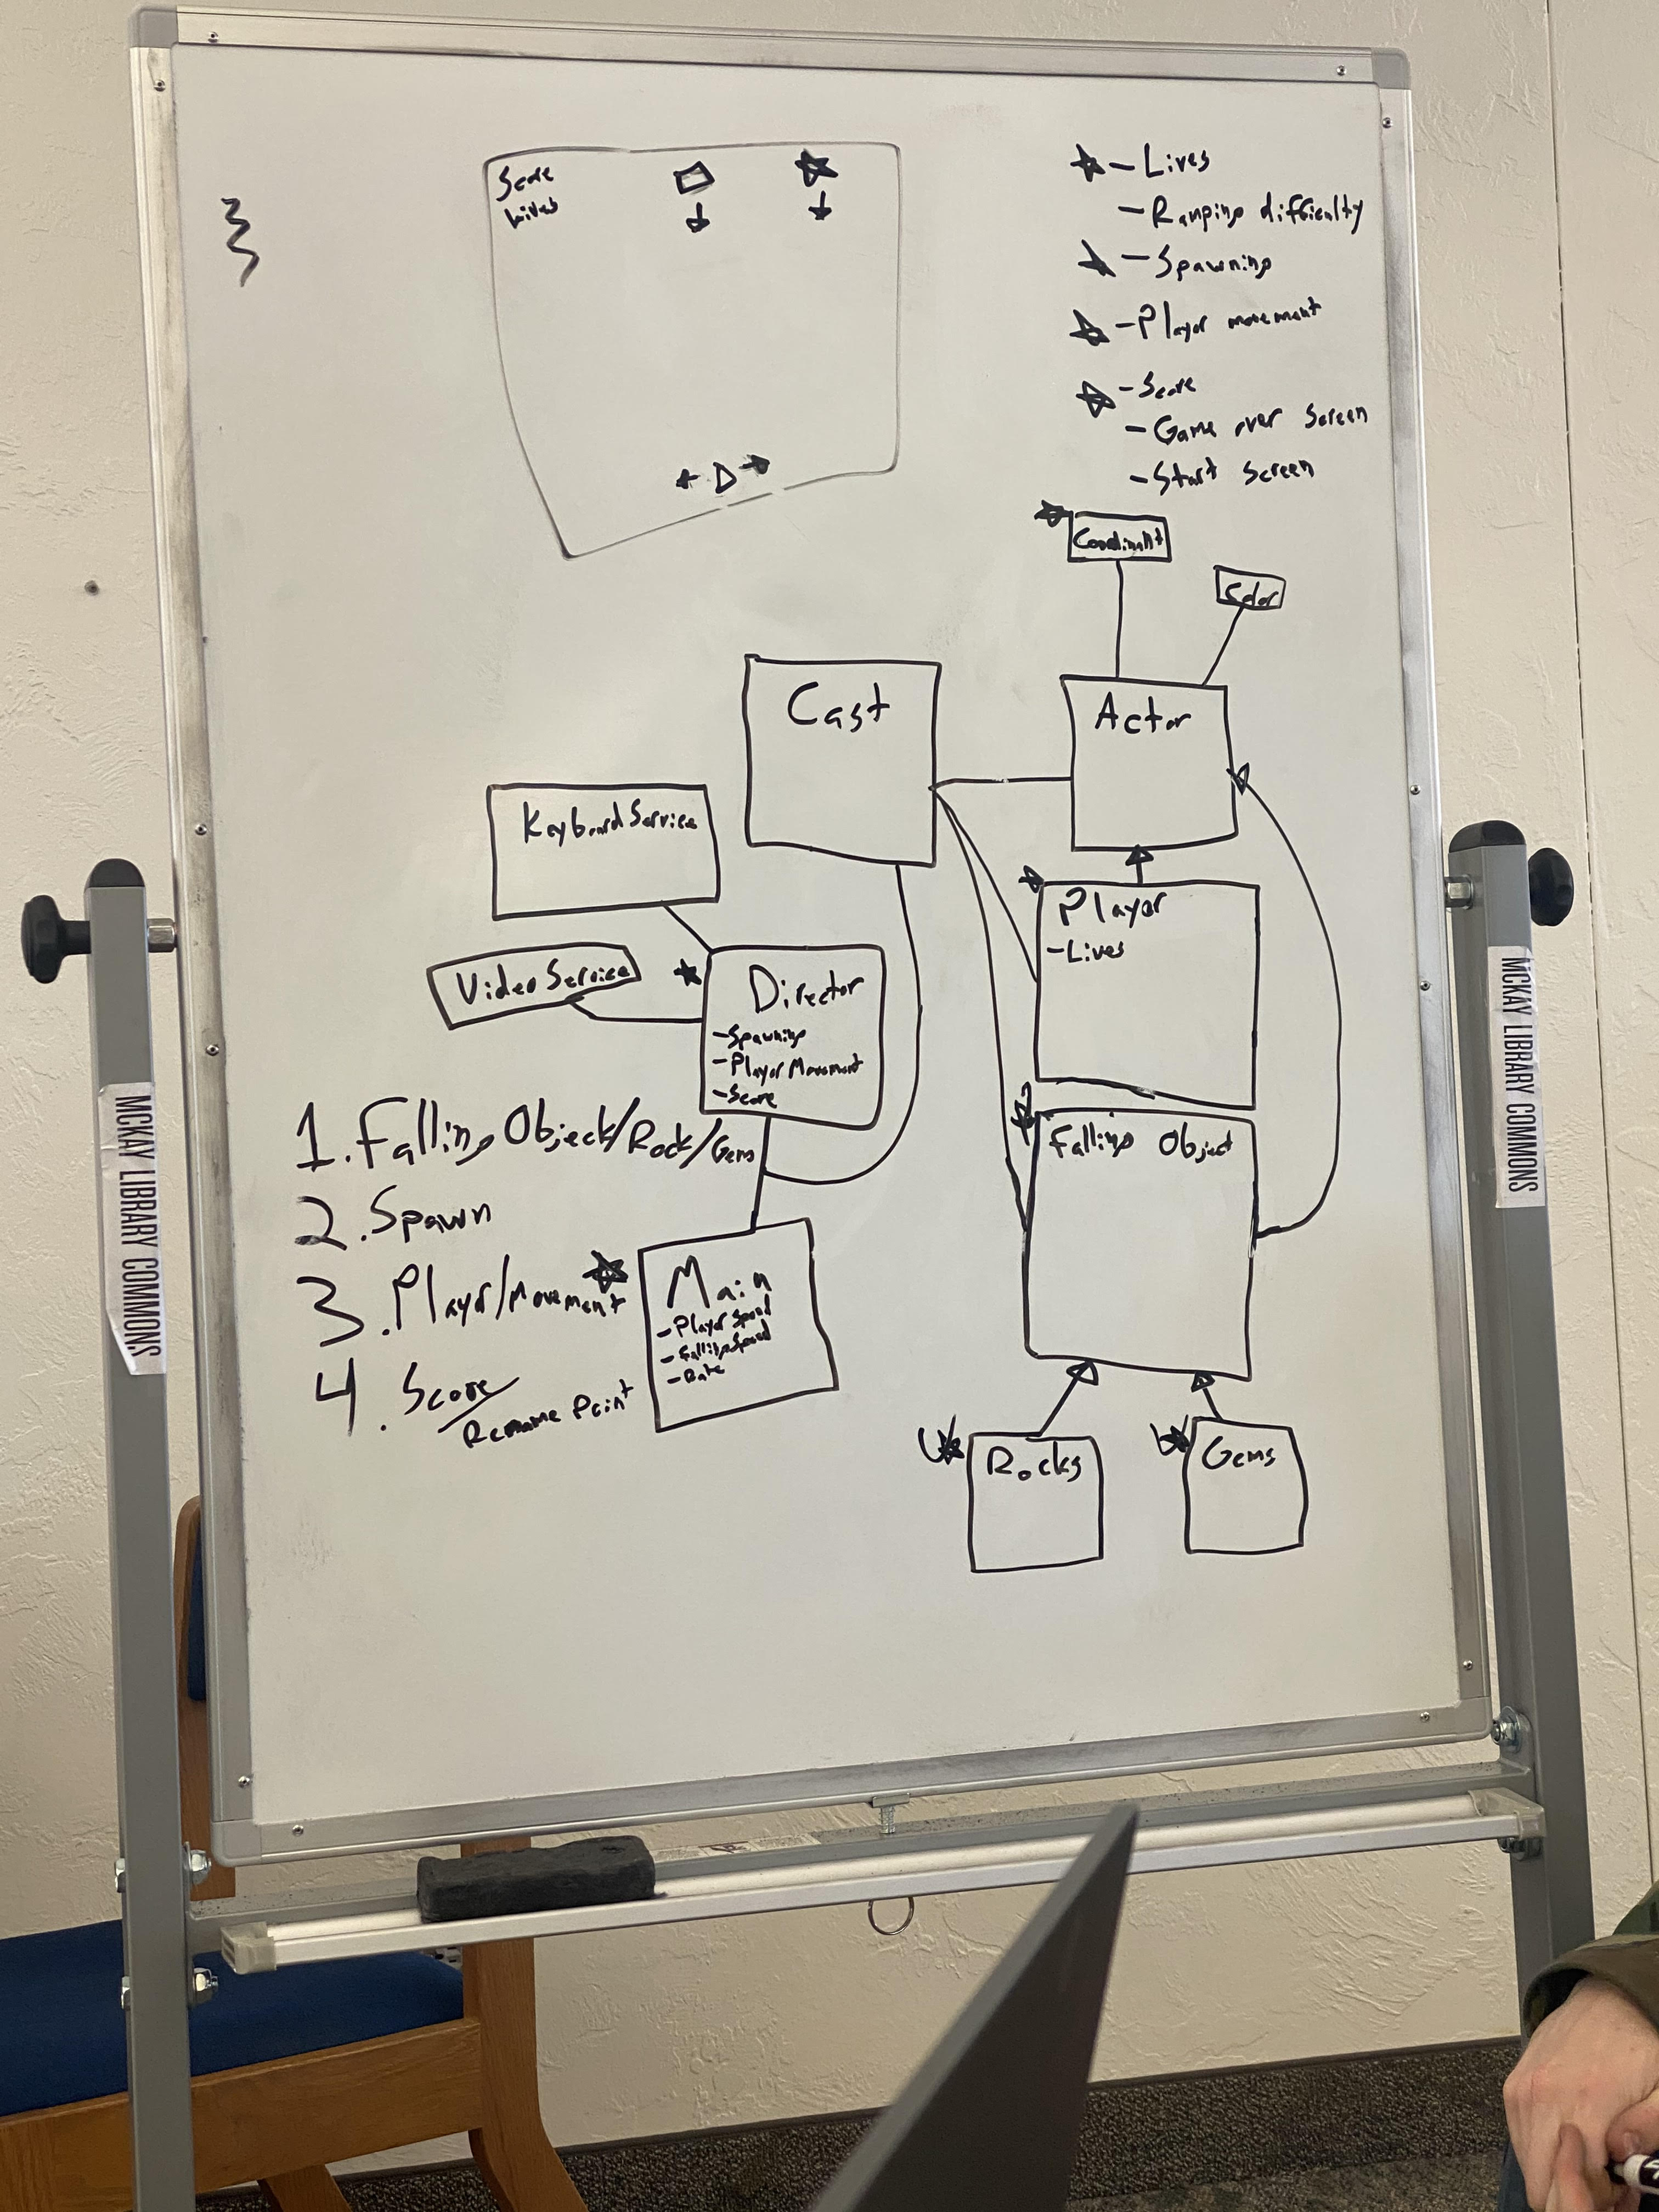 Score
Lives
- Lives
- Ramping difficulty
- Spawning
- Player movement
- Score
- Game over Screen
- Start Screen
Coordinant
Color
Cast
Actor
KeyboardService
Player
- Lives
VideoService
Director
- Spawning
- Player Movement
- Score
Falling Object
1. Falling Object/Rock/Gem
2. Spawn
3. Player/Movement
4. Score/
Rename Point
Main
- Player Speed
- Falling Speed
- Rate
Rocks
Gems
MCKAY LIBRARY COMMONS
MCKAY LIBRARY COMMONS